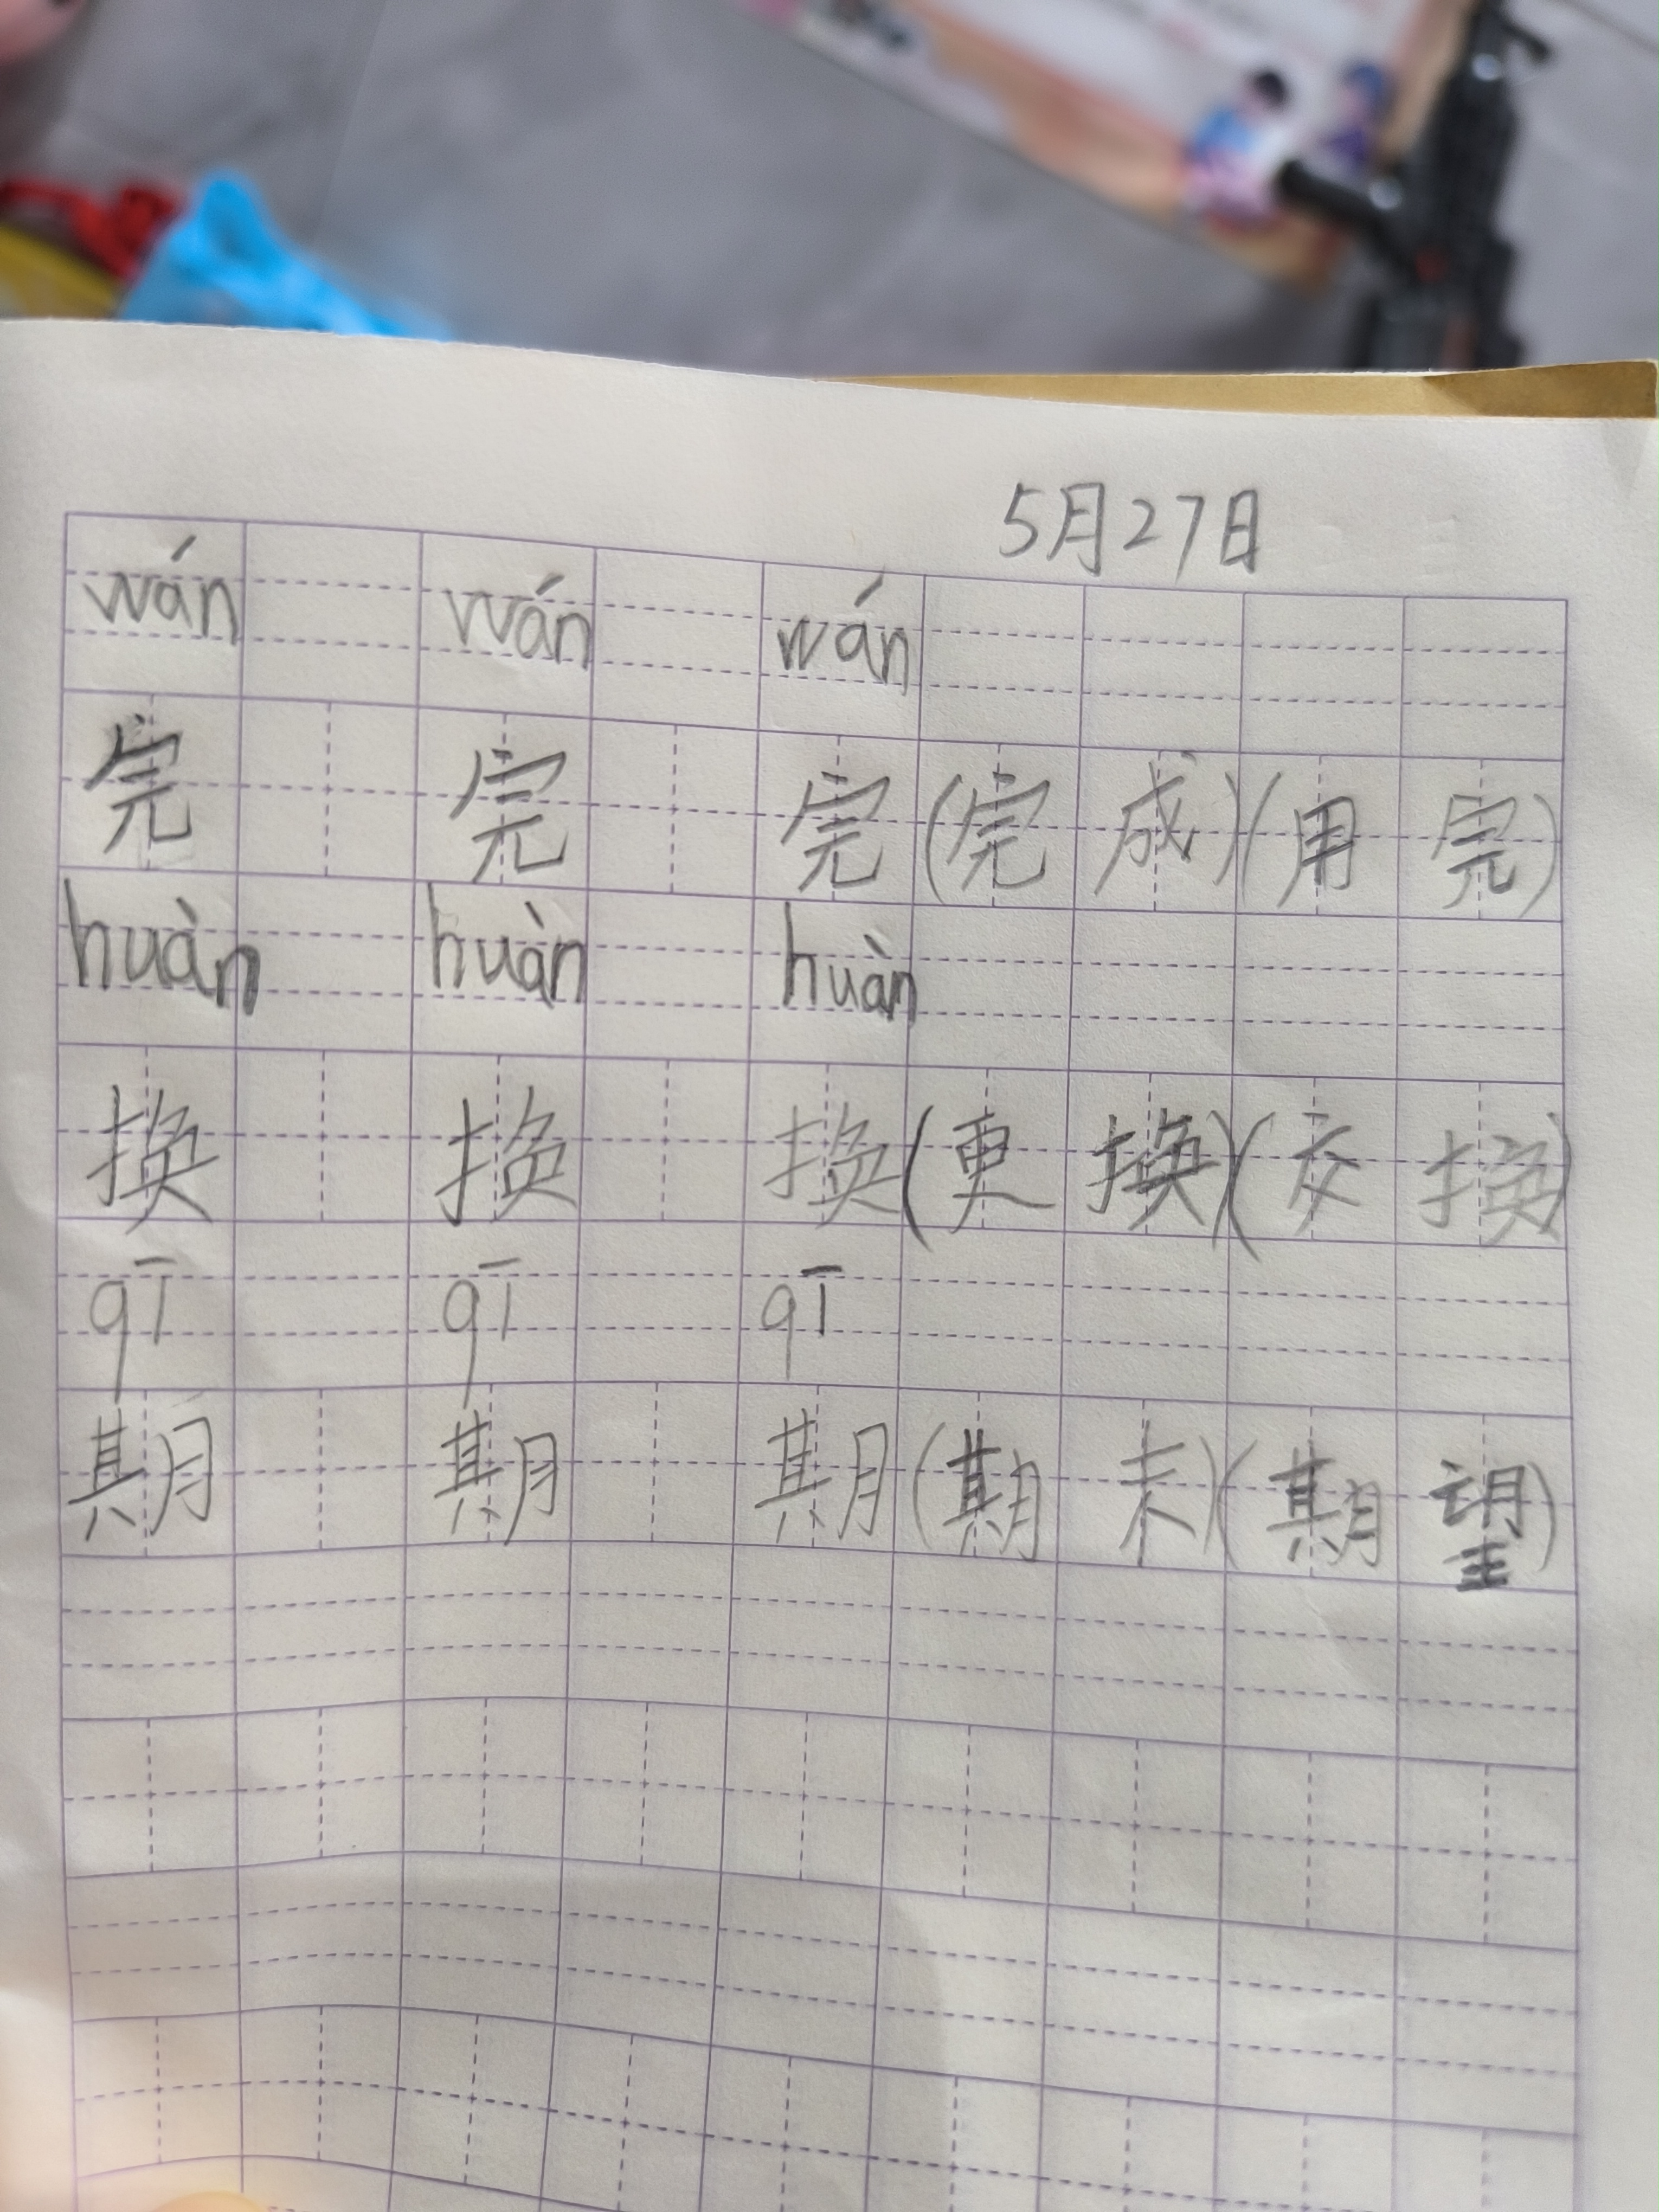 5月27日
wán wán wán
完 完 完(完成)(用完)
huàn huàn huàn
换 换 换(更换)(交换)
qī qī qī
期 期 期(期末)(期望)